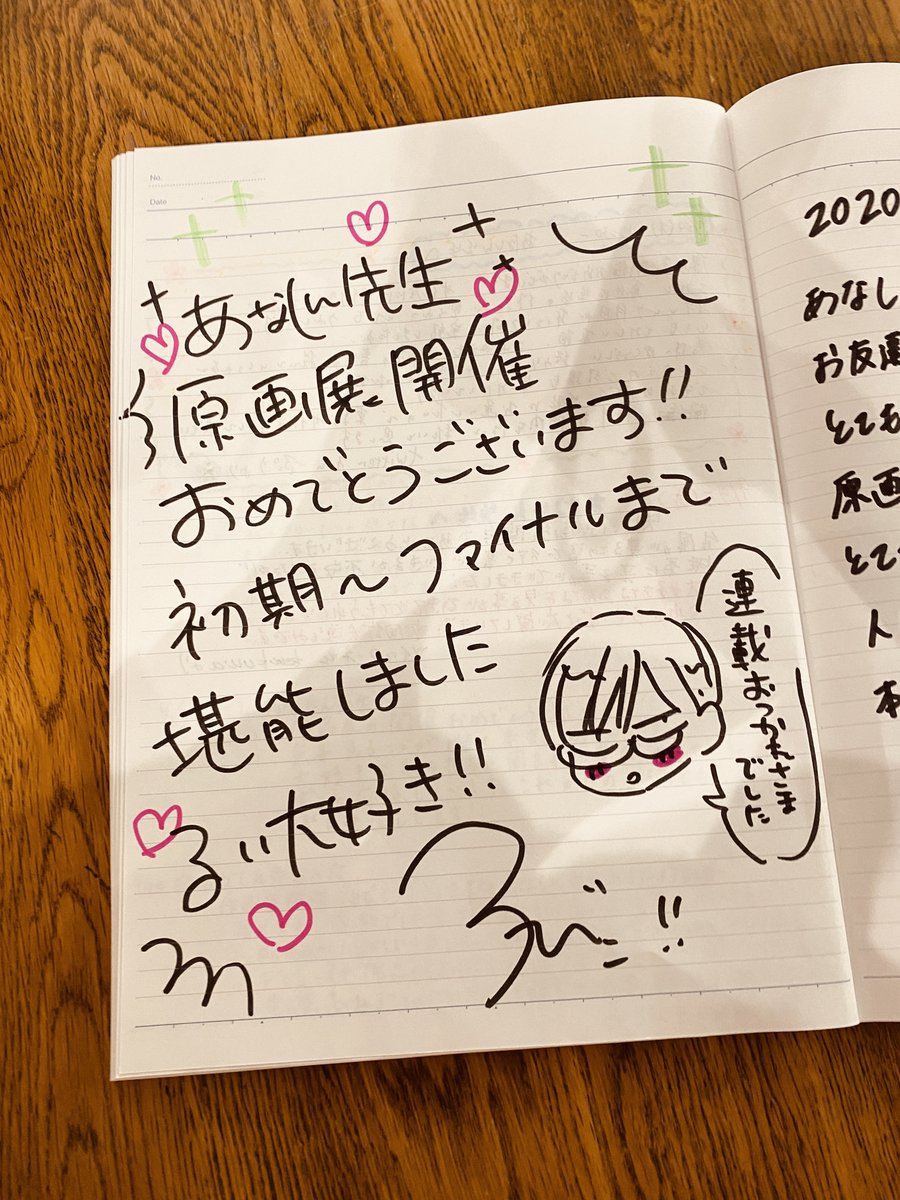 No.
Date
あなしん先生
原画展開催
おめでとうございます!!
初期～ファイナルまで
堪能しました
るい大好き!!
連載おつかれさま
でした
2020
あなし
お友達
とても
原画
とて
人
本